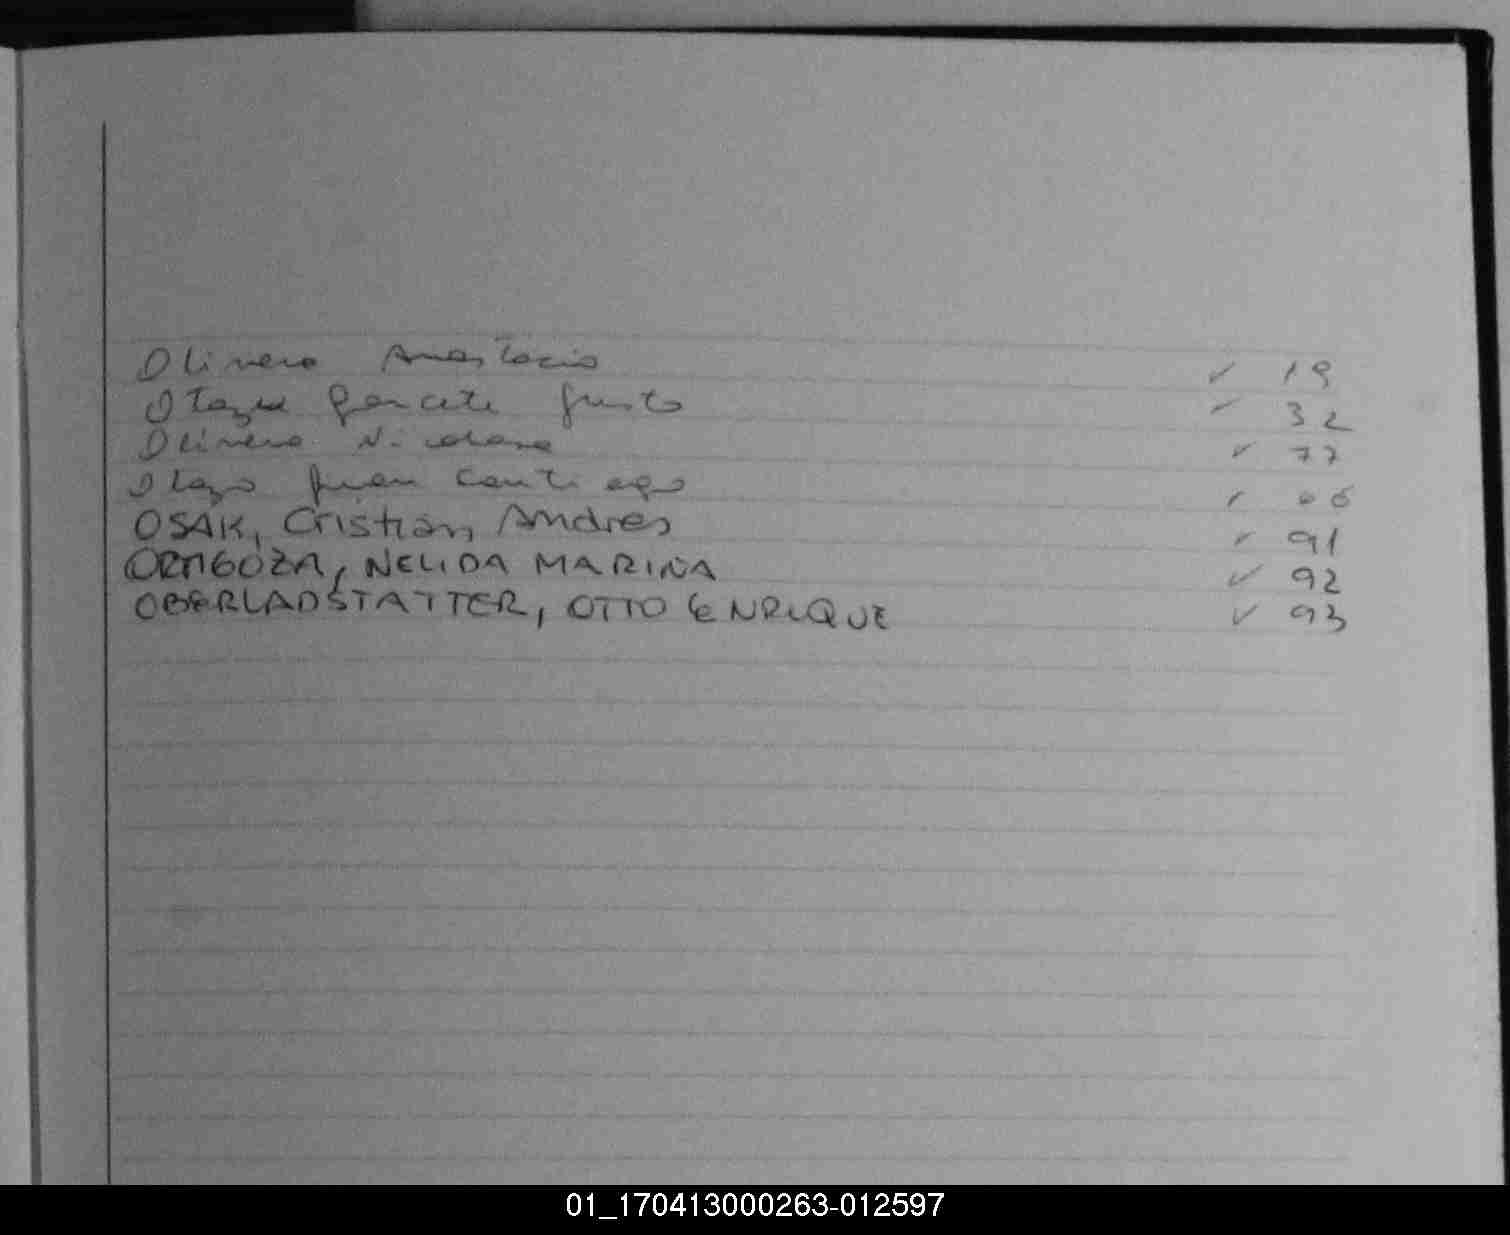 Olivera Anastacio ✓ 19
Otazu Gancete Justo ✓ 32
Olivera Nicolasa ✓ 77
Otazo Juan Santiago ✓
OSAK, Cristian, Andres ✓ 91
ORTIGOZA, NELIDA MARINA ✓ 92
OBERLADSTATTER, OTTO ENRIQUE ✓ 93
01_170413000263-012597